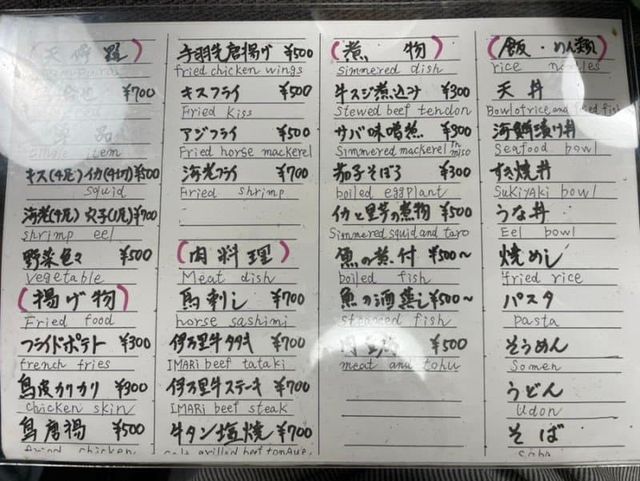 (天婦羅)
¥700
単品
item
キス(4尾)イカ(4切)¥500
squid
海老(4尾)穴子(1尾)¥700
shrimp eel
野菜色々 ¥500
vegetable
(揚げ物)
Fried food
フライドポテト ¥300
french fries
鳥皮カリカリ ¥300
chicken skin
鳥唐揚 ¥500
fried chicken
手羽先唐揚げ ¥500
fried chicken wings
キスフライ ¥500
Fried Kiss
アジフライ ¥500
Fried horse mackerel
海老フライ ¥700
Fried shrimp
(肉料理)
Meat dish
馬刺し ¥700
horse sashimi
伊万里牛タタキ ¥700
IMARi beef tataki
伊万里牛ステーキ ¥700
IMARi beef steak
牛タン塩焼 ¥700
grilled beef tongue
(煮物)
simmered dish
牛スジ煮込み ¥300
Stewed beef tendon
サバ味噌煮 ¥300
Simmered mackerel in miso
茄子そぼろ ¥300
boiled eggplant
イカと里芋の煮物 ¥500
Simmered squid and taro
魚の煮付 ¥500~
boiled fish
魚の酒蒸し ¥500~
steamed fish
¥500
meat and tohu
(飯・めん類)
rice noodles
天丼
Bowl of rice and fried fish
海鮮漬け丼
Seafood bowl
すき焼丼
SuKiyAki bowl
うな丼
Eel bowl
焼めし
fried rice
パスタ
pasta
そうめん
Somen
うどん
Udon
そば
Soba